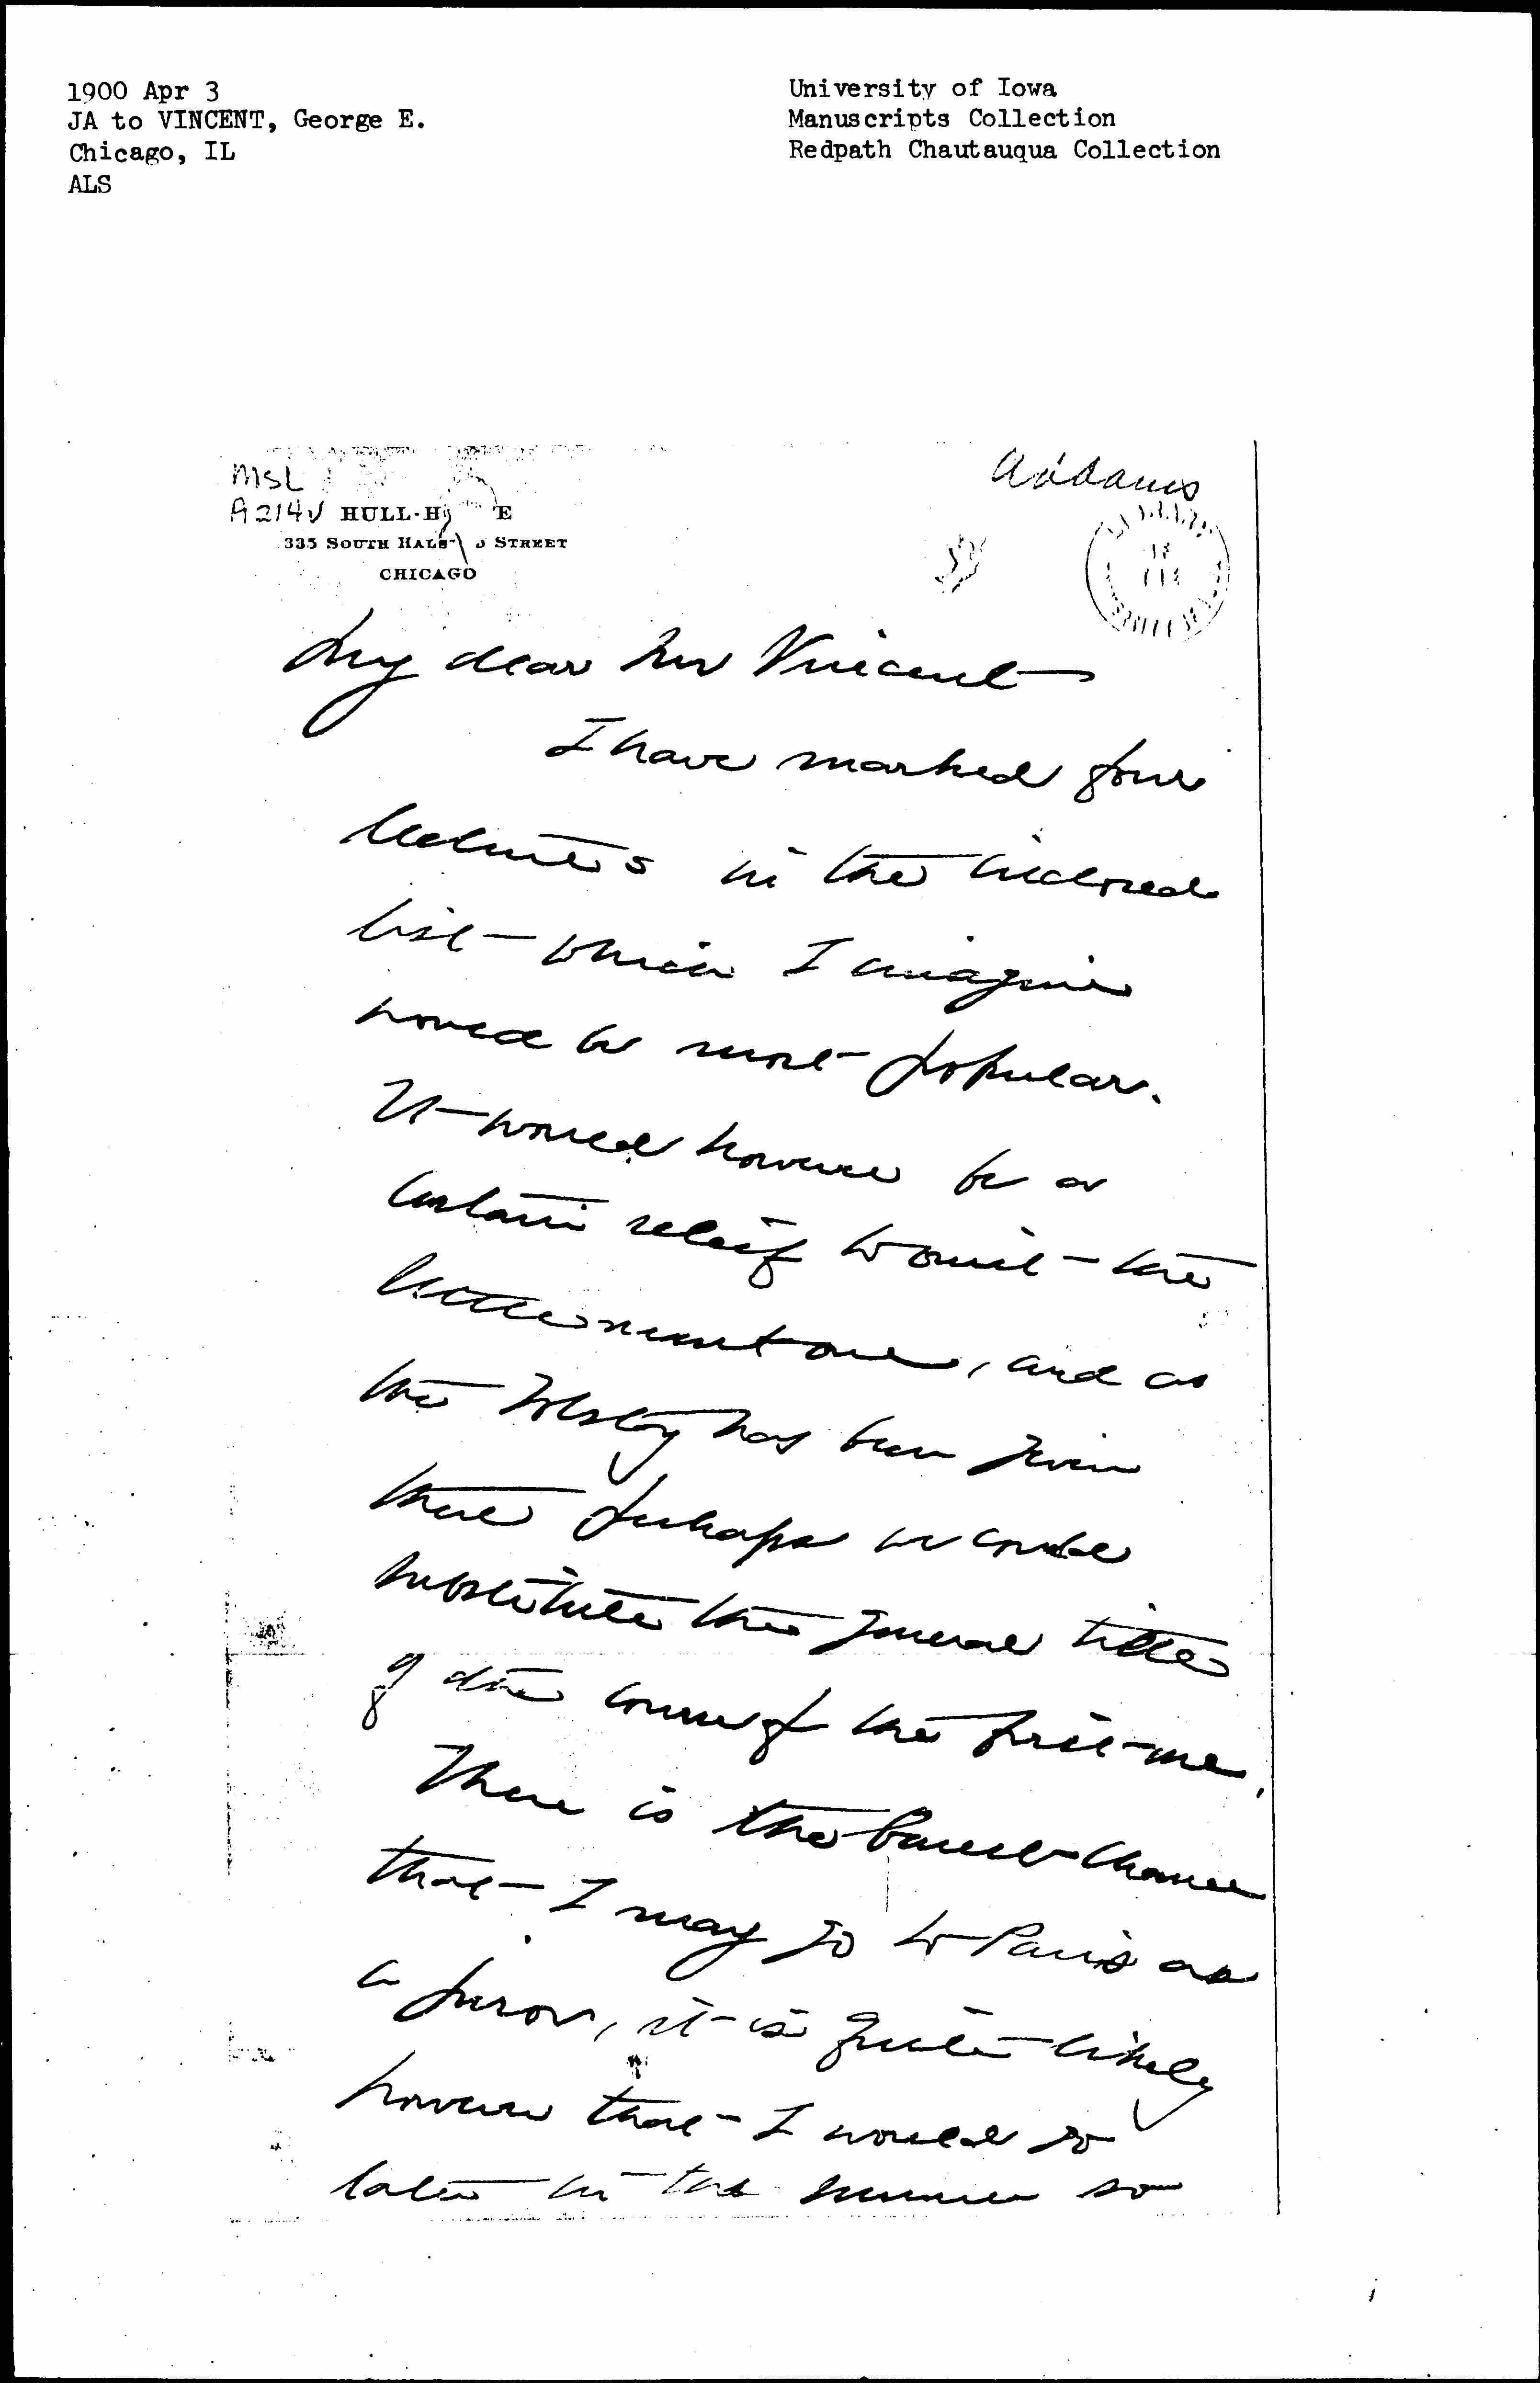 1900 Apr 3
JA to VINCENT, George E.
Chicago, IL
ALS
University of Iowa
Manuscripts Collection
Redpath Chautauqua Collection
MSL
A214v
Addams
HULL-H E
335 SOUTH HALS D STREET
CHICAGO
My dear Mr Vincent
I have marked four
lectures in the inclosed
list which I imagine
would be most popular.
It would however be a
certain relief to omit the
settlement one, and as
the Tolstoy has been given
there perhaps we could
substitute the general title
of the course for the first one.
There is the barest chance
that I may go to Paris as
a juror, it is quite likely
however that I would go
later in the summer so
1